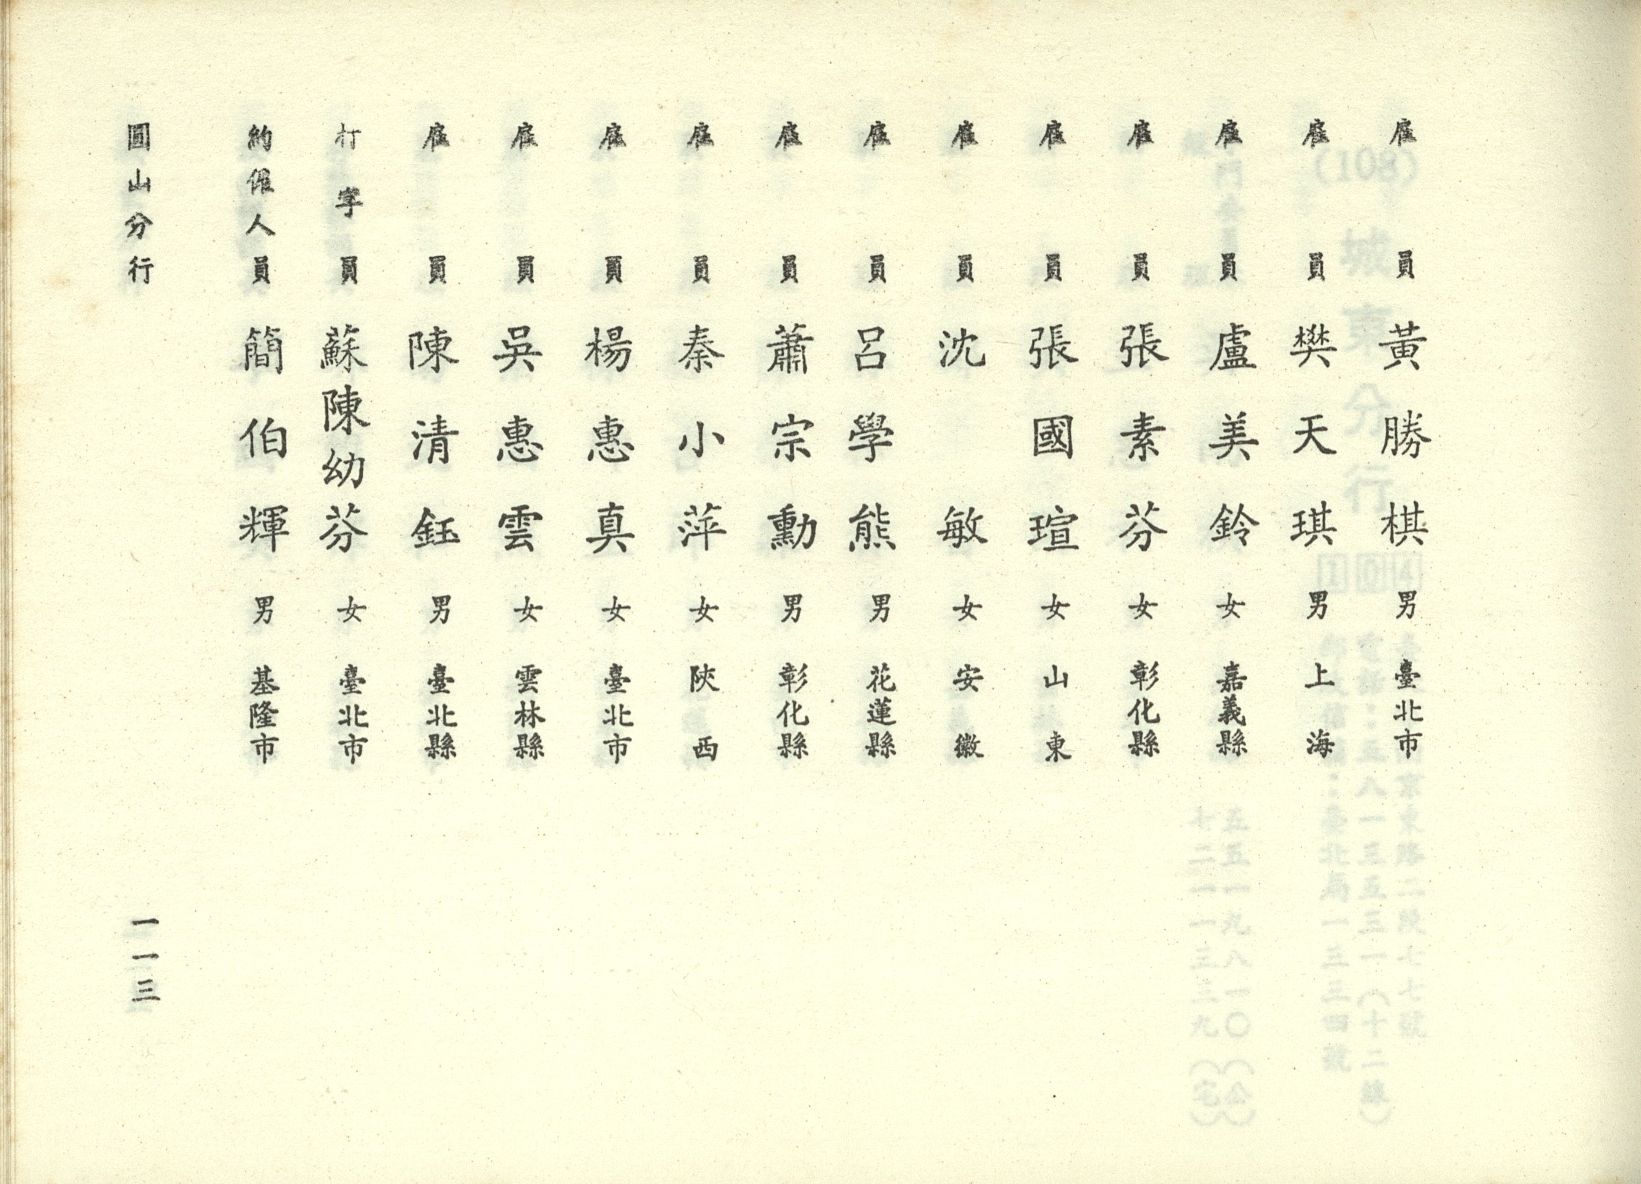 雇員 黃勝棋 男 臺北市
雇員 樊天琪 男 上海
雇員 盧美鈴 女 嘉義縣
雇員 張素芬 女 彰化縣
雇員 張國瑄 女 山東
雇員 沈敏 女 安徽
雇員 呂學熊 男 花蓮縣
雇員 蕭宗勳 男 彰化縣
雇員 秦小萍 女 陝西
雇員 楊惠真 女 臺北市
雇員 吳惠雲 女 雲林縣
雇員 陳清鈺 男 臺北縣
打字員 蘇陳幼芬 女 臺北市
約僱人員 簡伯輝 男 基隆市
圓山分行
一一三
(108) 城東分行 104